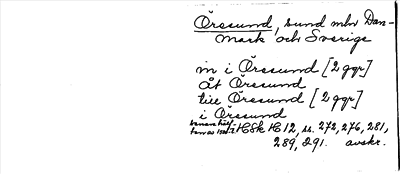 Öresund, sund mln Dan-
mark och Sverige
in i Öresund [2 ggr]
åt Öresund
till Öresund [2 ggr]
i Öresund
HSk H 12, ss. 272, 276, 281,
289, 291. avskr.